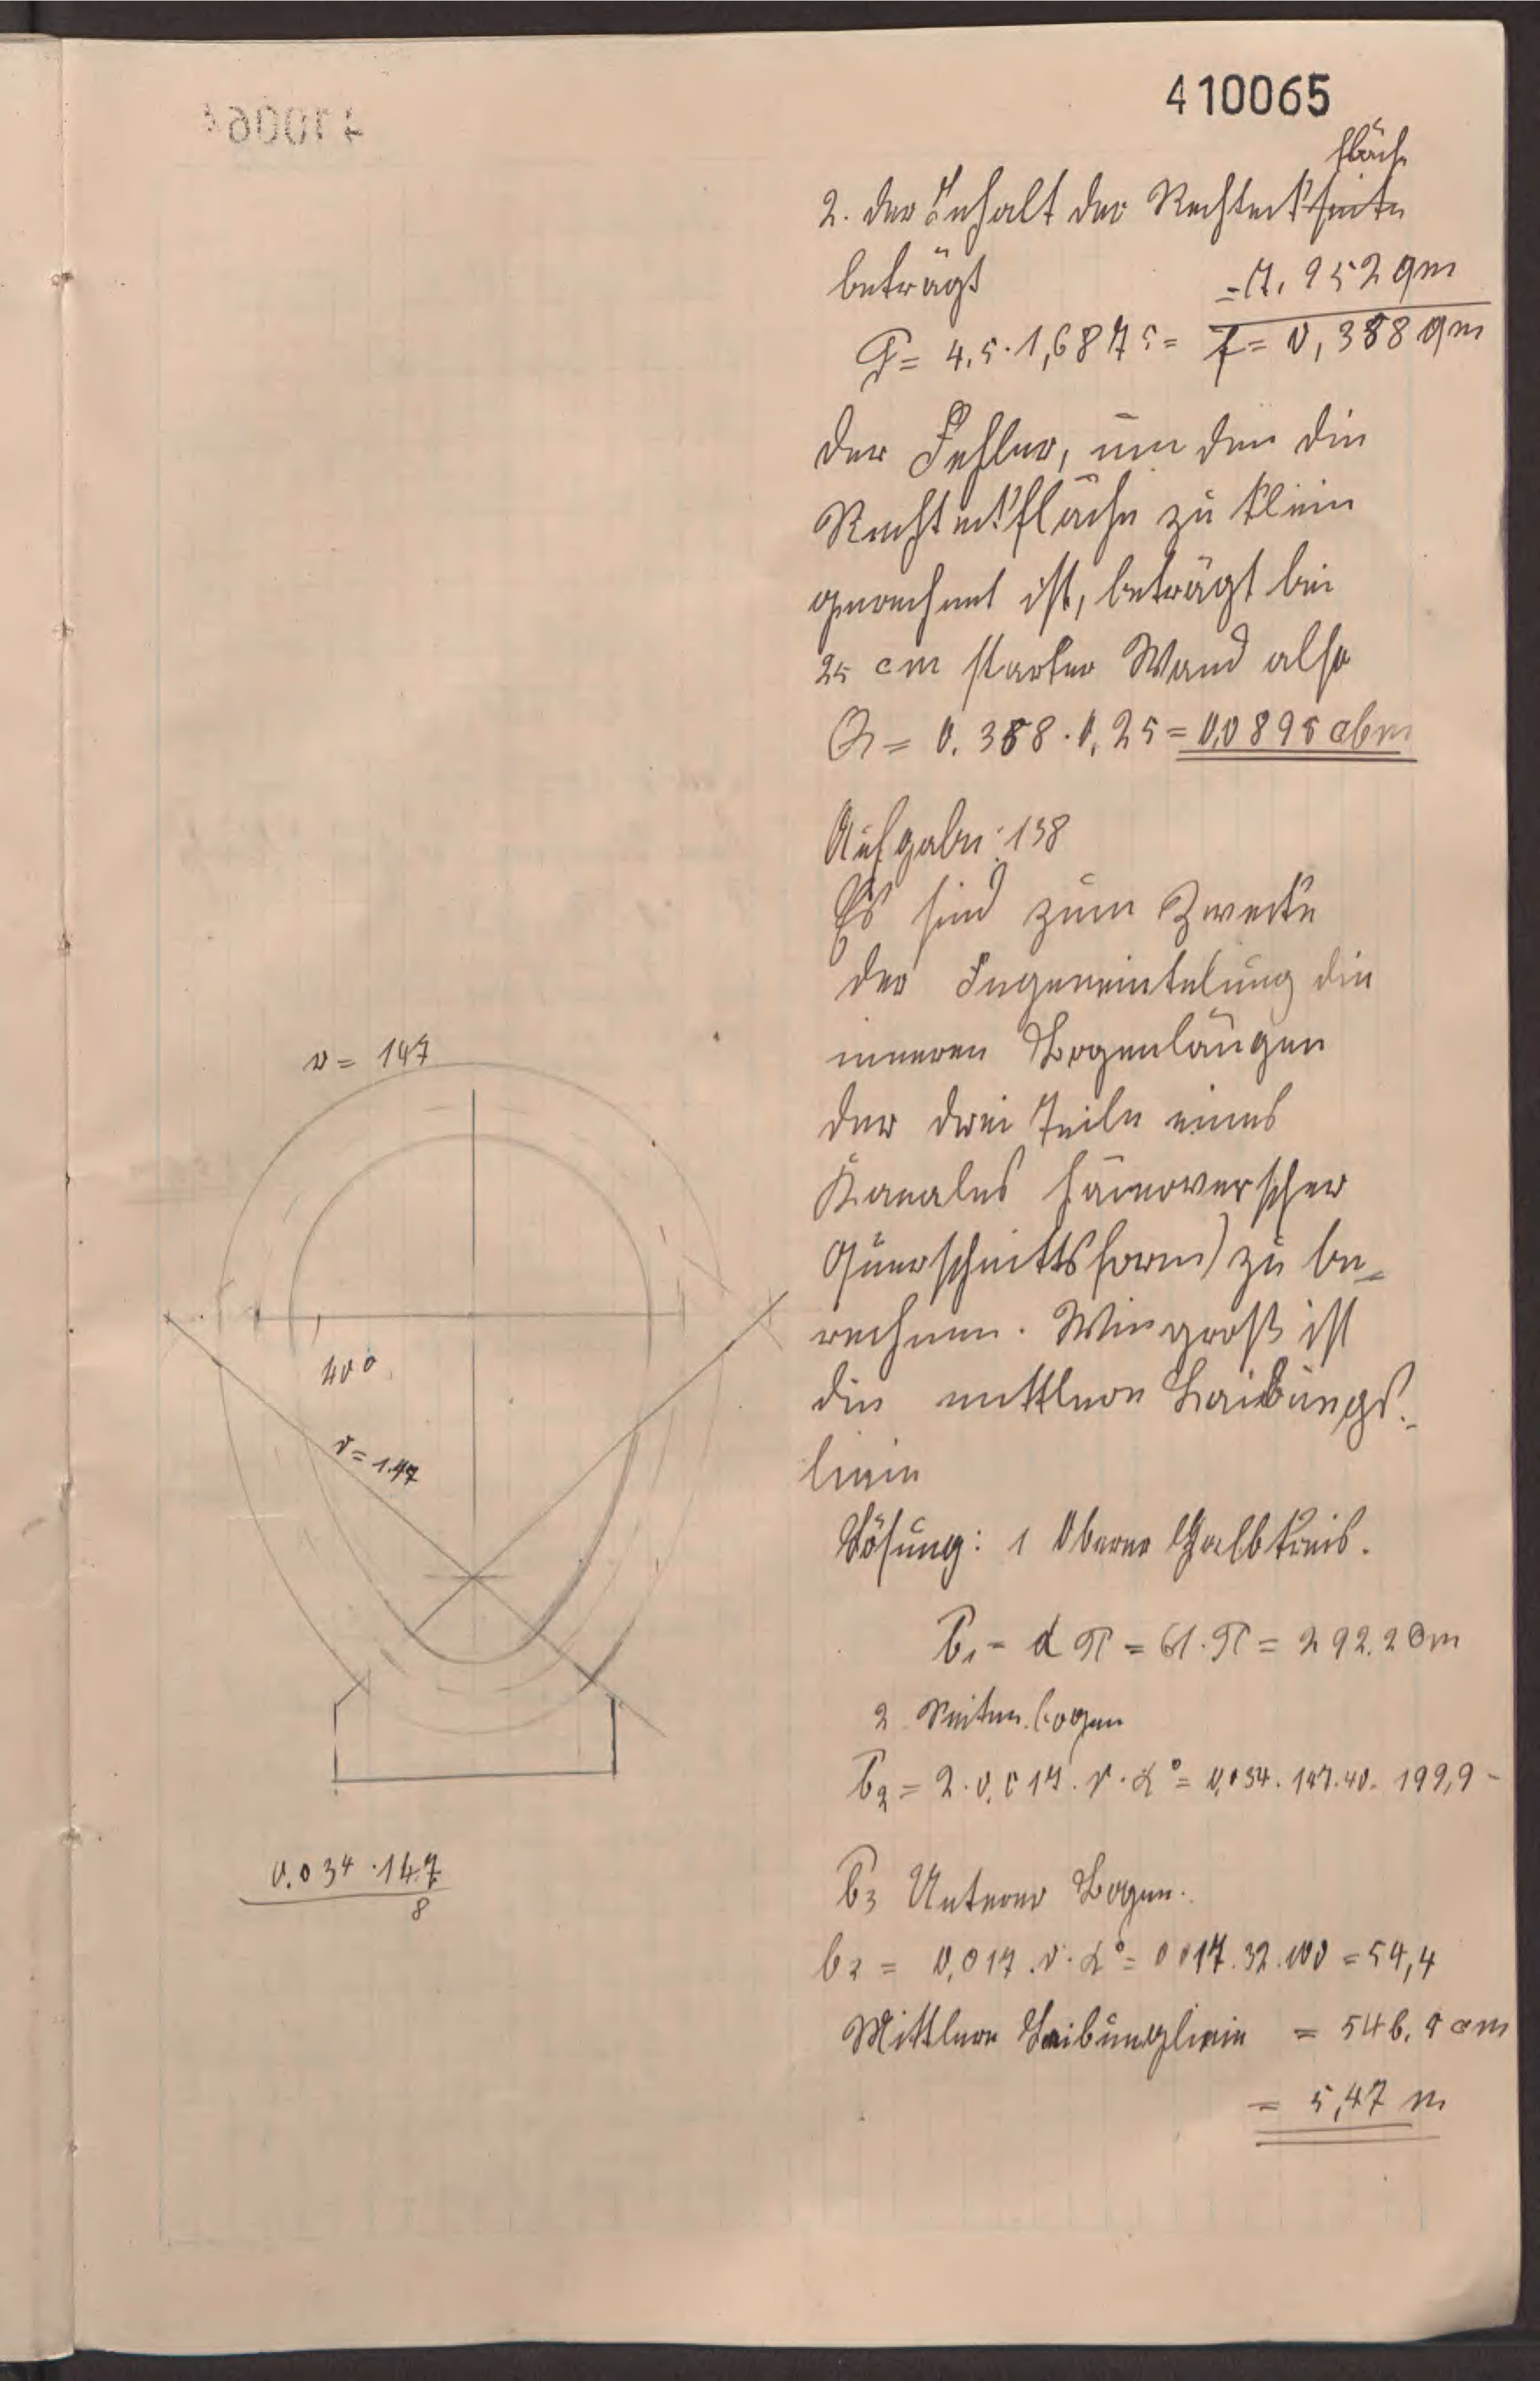 410065
fläche
2. der Inhalt der Rechteckseite
beträgt = 7,952 qm
F = 4,5 · 1,6875 = f = 0,358 qm
der Fehler, um den die
Rechteckfläche zu klein
gerechnet ist, beträgt bei
25 cm starker Wand also
= 0,358 · 0,25 = 0,0895 cbm
Aufgabe: 138
Es sind zum Zwecke
der Fugeneintelung die
inneren Bogenlängen
der drei Teile eines
Kanales hannoverscher
Querschnittsform) zu be-
rechnen. Wie groß ist
die mittlere Laibungs-
linie
Lösung: 1 Oberer Halbkreis.
b₁ = d π = 61 · π = 292.2 cm
2 Seitenbogen
b₂ = 2 · 0,017 · r · α° = 0,034 · 147 · 40 = 199,9 -
b₃ Unterer Bogen.
b₃ = 0,017 · r · α° = 0,017 · 32 · 100 = 54,4
Mittlere Laibungslinie = 546,5 cm
= 5,47 m
r = 147
40°
r = 1.47
0.034 · 147
8